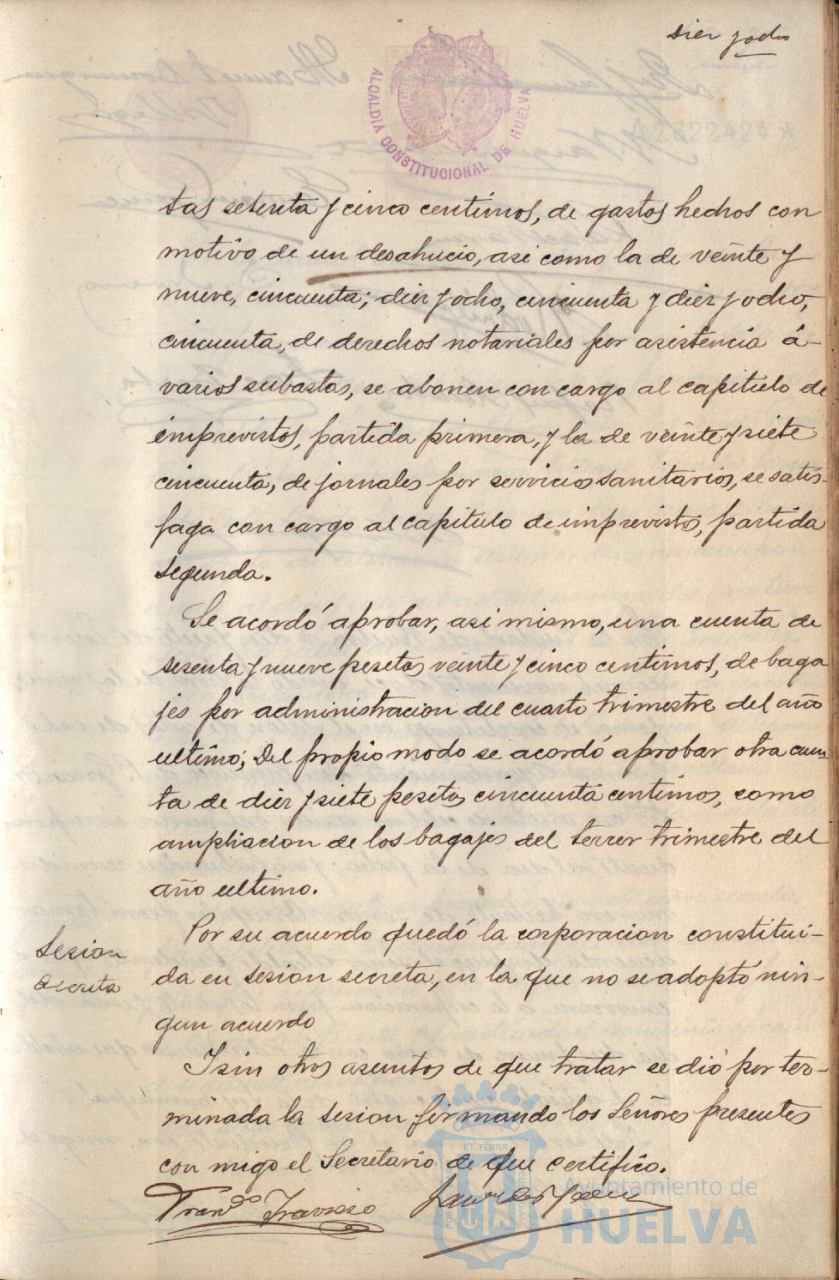 Diez y ocho
ALCALDIA CONSTITUCIONAL DE HUELVA
A2822424*
tas setenta y cinco centimos, de gastos hechos con
motivo de un desahucio, asi como la de veinte y
nueve, cincuenta; diez y ocho, cincuenta y diez y ocho,
cincuenta, de derechos notariales por asistencia á-
varios subastas, se abonen con cargo al capitulo de
imprevistos, partida primera, y la de veinte y siete
cincuenta, de jornales por servicios sanitarios, se satis-
faga con cargo al capitulo de imprevistos, partida
segunda.
Se acordó aprobar, asi mismo, una cuenta de
sesenta y nueve pesetas veinte y cinco centimos, de baga
jes por administracion del cuarto trimestre del año
ultimo; Del propio modo se acordó aprobar otra cuen
ta de diez y siete pesetas cincuenta centimos, como
ampliacion de los bagajes del tercer trimestre del
año ultimo.
Sesion
secreta
Por su acuerdo quedó la corporacion constitui-
da en sesion secreta, en la que no se adoptó nin-
gun acuerdo
I sin otros asuntos de que tratar se dió por ter-
minada la sesion firmando los Señores presentes
con migo el Secretario de que certifico.
Ayuntamiento de
HUELVA